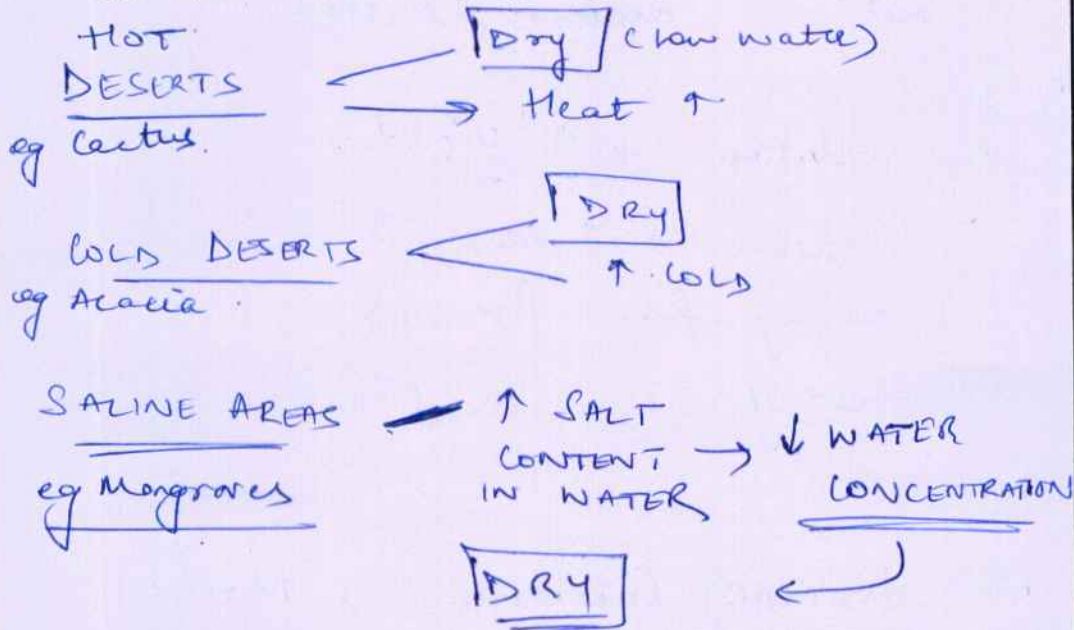 HOT
DESERTS
eg Cactus.
Dry (low water)
Heat ↑
COLD DESERTS
eg Acacia.
DRY
↑ COLD
SALINE AREAS
eg Mangroves
↑ SALT
CONTENT
IN WATER
→ ↓ WATER
CONCENTRATION
DRY